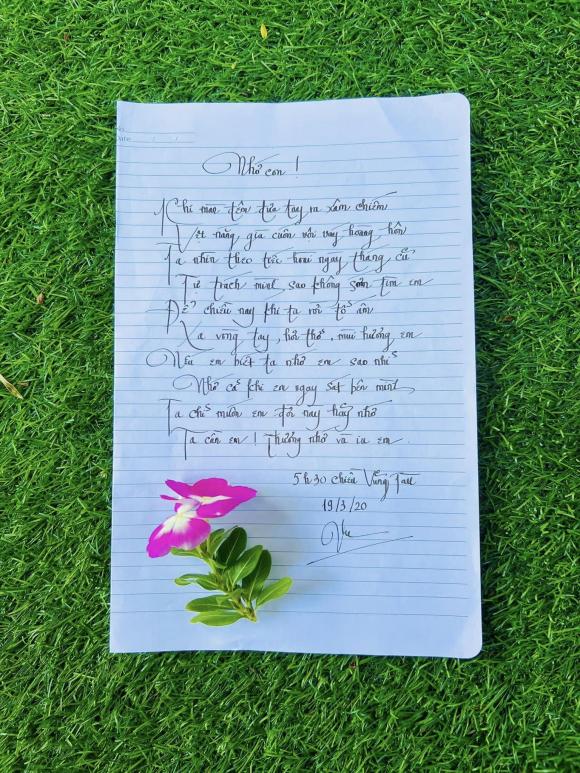 Date
Nhớ con !
Khi màn đêm đưa tay ra xâm chiếm
Vệt nắng già cuốn vội vạy hoàng hôn
Ta nhìn theo tiếc hoài ngày tháng cũ
Tự trách mình sao không sớm tìm em
Để chiều nay khi ta rời tổ ấm
Xa vòng tay, hơi thở, mùi hương em
Nếu em biết ta nhớ em sao nhỉ
Nhớ cả khi em ngay sát bên mình
Ta chỉ muốn em đời này hãy nhớ
Ta cần em ! Thương nhớ và em
5h30 chiều Vũng Tàu
19/3/20